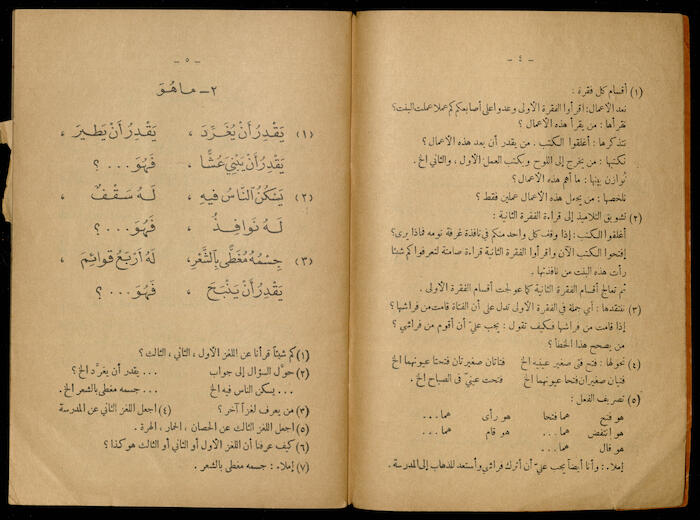 - ٤ -
(١) أقسام كل فقرة :
نعد الاعمال : اقرأوا الفقرة الاولى وعدوا على أصابعكم كم عملا عملت البنت ؟
نقرأها : من يقرأ هذه الاعمال ؟
نتذكرها : أغلقوا الكتب . من يقدر أن يعد هذه الاعمال ؟
نكتبها : من يخرج إلى اللوح ويكتب العمل الاول ، والثاني الخ .
نوازن بينها : ما أهم هذه الاعمال ؟
نلخصها : من يجعل هذه الاعمال عملين فقط ؟
(٢) تشويق التلاميذ إلى قراءة الفقرة الثانية :
أغلقوا الكتب : إذا وقف كل واحد منكم في نافذة غرفة نومه فماذا يرى ؟
إفتحوا الكتب الآن واقرأوا الفقرة الثانية قراءة صامتة لتعرفوا كم شيئا
رأت هذه البنت من نافذتها .
ثم تعالج أقسام الفقرة الثانية كما عولجت أقسام الفقرة الاولى .
(٣) ننتقدها : أي جملة في الفقرة الاولى تدل على أن الفتاة قامت من فراشها ؟
إذا قامت من فراشها فكيف تقول : يجب علي أن أقوم من فراشي ؟
من يصحح هذا الخطأ ؟
(٤) نحولها : فتح فتى صغير عينيه الخ فتاتان صغيرتان فتحتا عيونهما الخ
فتيان صغيران فتحا عيونهما الخ فتحت عينيّ في الصباح الخ .
(٥) تصريف الفعل :
هو فتح هما فتحا هو رأى هما ...
هو انتفض هما ... هو قام هما ...
هو قال هما ...
إملاء : وأنا أيضاً يجب عليّ أن أترك فراشي وأستعد للذهاب إلى المدرسة .
- ٥ -
٢ - ما هُوَ
(١) يَقْدِرُ أَنْ يُغَرِّدَ ، يَقْدِرُ أَنْ يَطِيرَ ،
يَقْدِرُ أَنْ يَبْنِيَ عُشًّا ، فَهُوَ . . . ؟
(٢) يَسْكُنُ ٱلنَّاسُ فِيهِ ، لَهُ سَقْفٌ ،
لَهُ نَوَافِذُ ، فَهُوَ . . . ؟
(٣) جِسْمُهُ مُغَطًّى بِٱلشَّعْرِ ، لَهُ أَرْبَعُ قَوَائِمَ ،
يَقْدِرُ أَنْ يَنْبَحَ ، فَهُوَ . . . ؟
(١) كم شيئاً قرأنا عن اللغز الاول ، الثاني ، الثالث ؟
(٢) حوّل السؤال إلى جواب ... يقدر أن يغرّد الخ ؟
... يسكن الناس فيه الخ ... جسمه مغطى بالشعر الخ .
(٣) من يعرف لغزاً آخر ؟ (٤) اجعل اللغز الثاني عن المدرسة
(٥) اجعل اللغز الثالث عن الحصان ، الحمار ، الهرة .
(٦) كيف عرفنا أن اللغز الأول أو الثاني أو الثالث هو كذا ؟
(٧) إملاء : جسمه مغطى بالشعر .